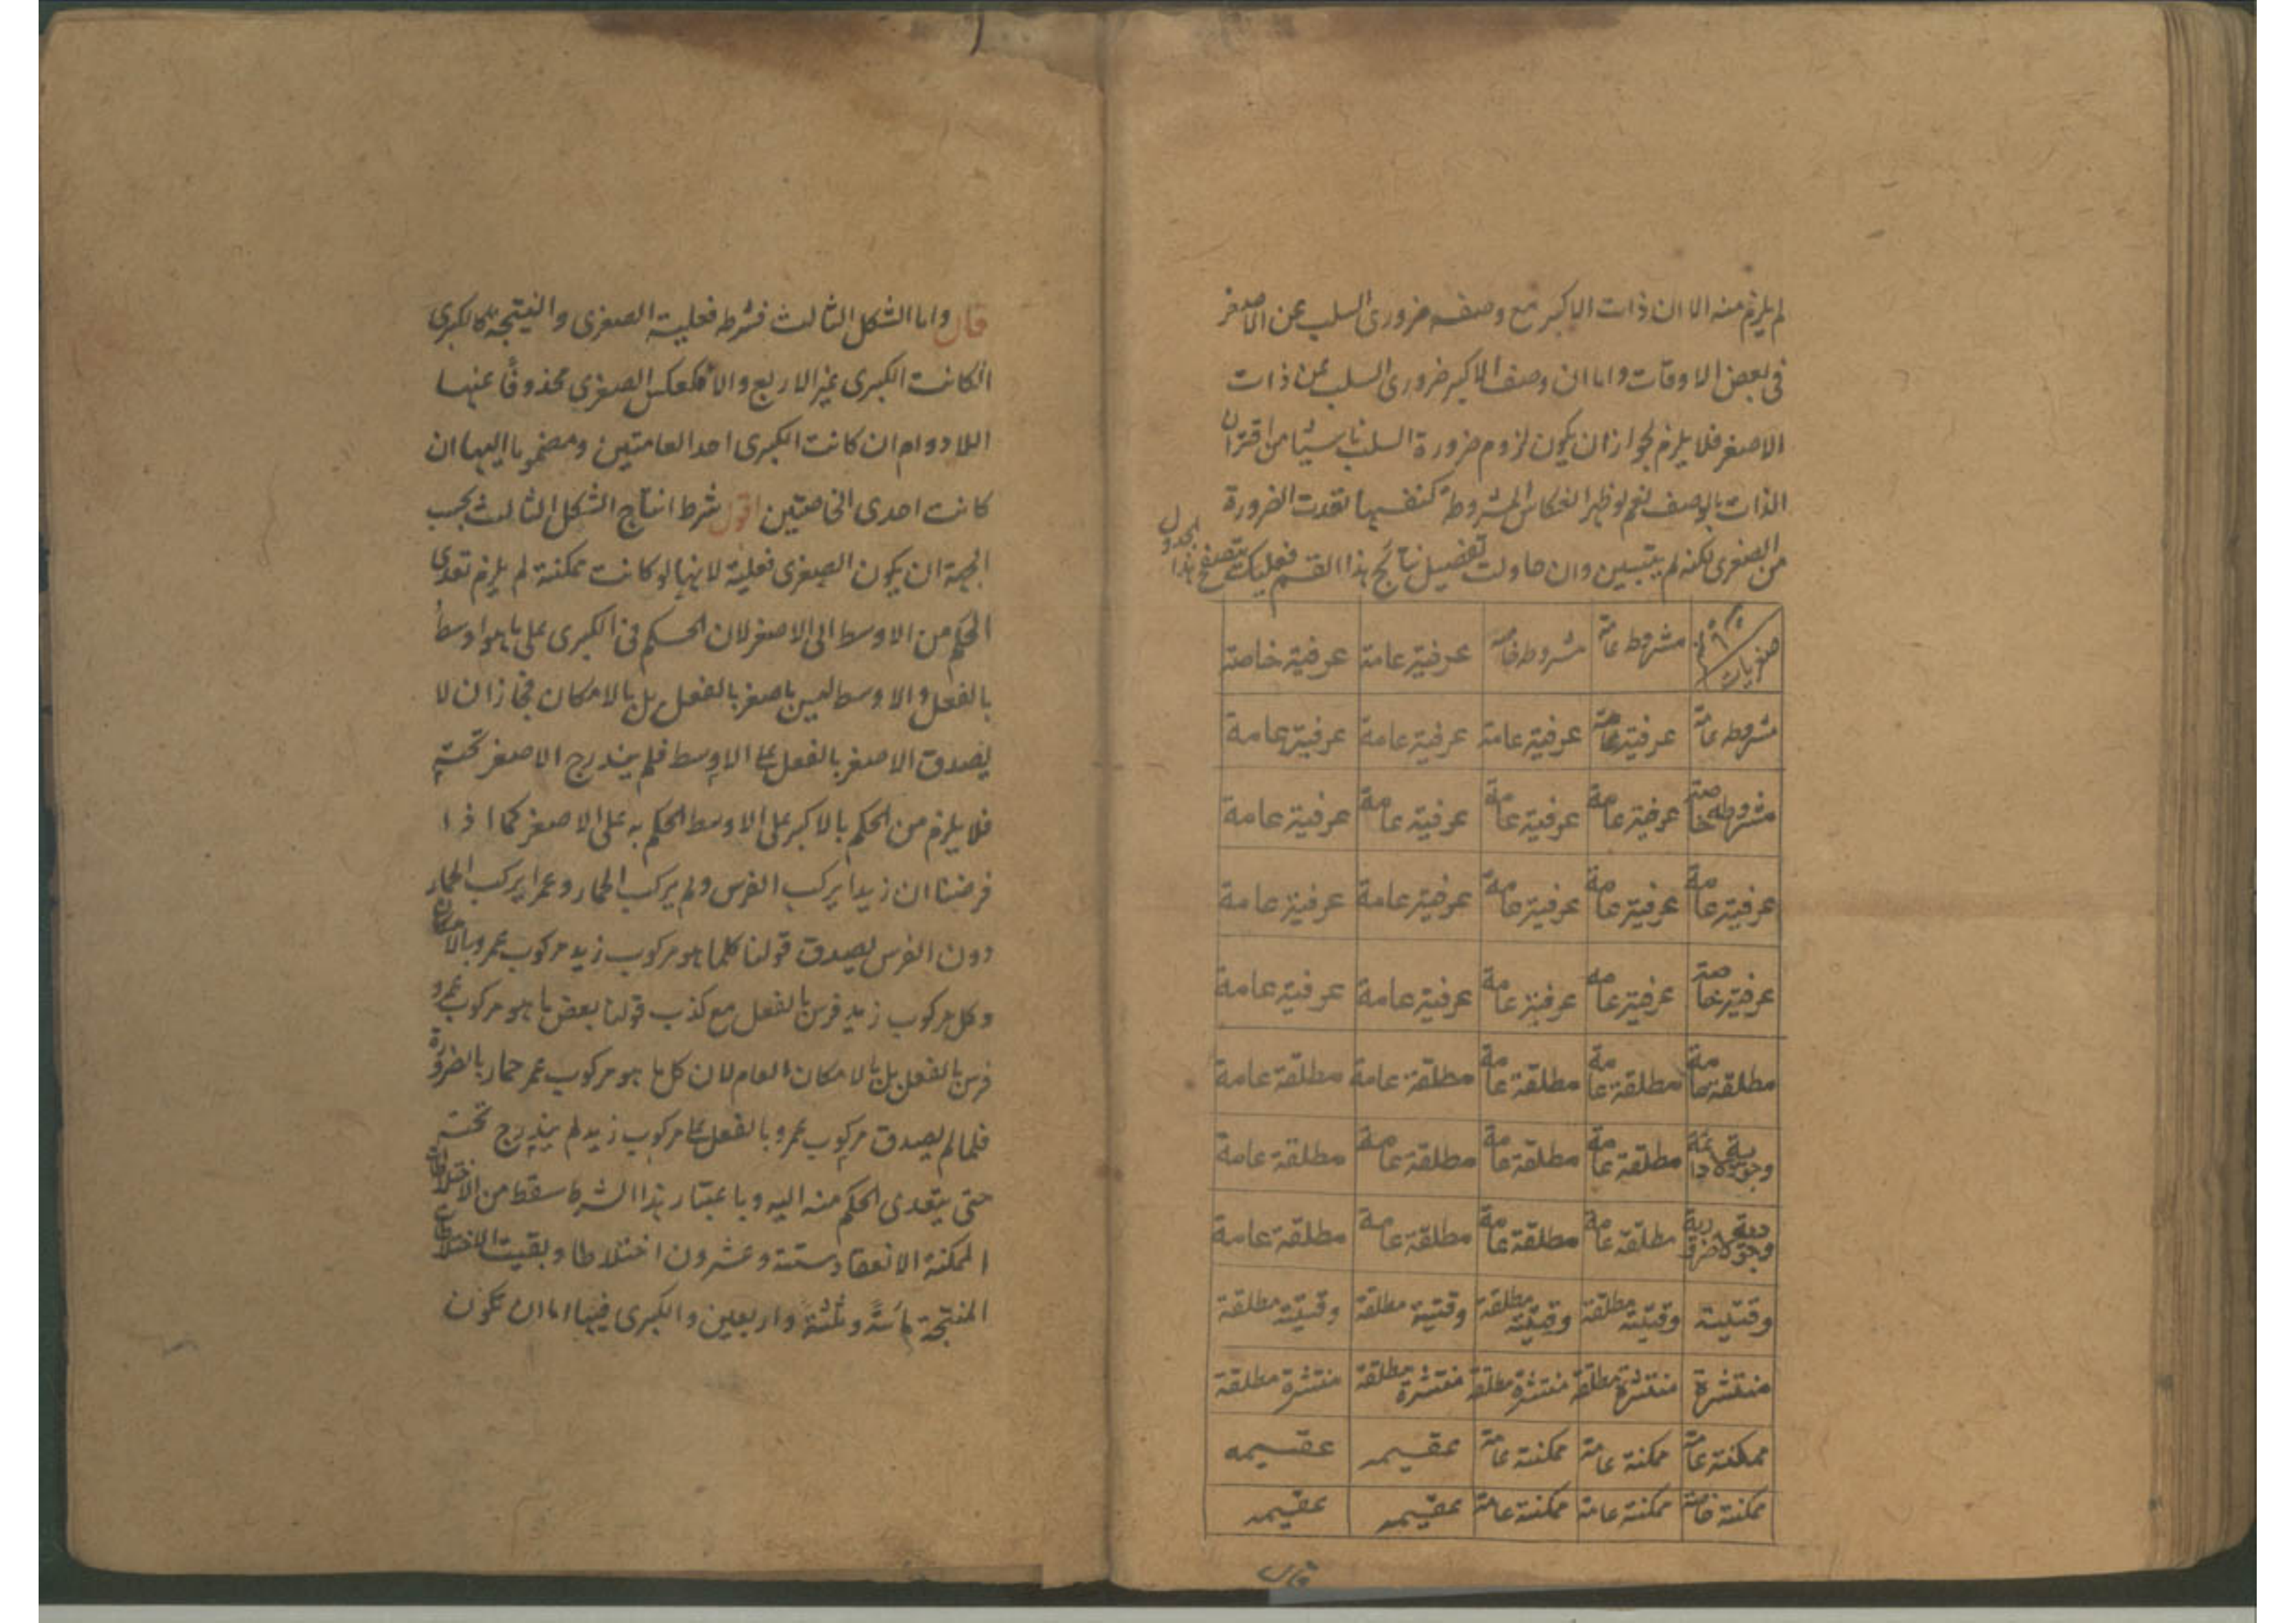 لم يلزم منه الا ان ذات الاكبر مع وصفه ضرورى السلب عن الاصغر
فى بعض الاوقات واما ان وصف الاكبر ضرورى السلب عن ذات
الاصغر فلا يلزم لجواز ان يكون لزوم ضرورة السلب ناشيا من اقتران
الذات بالوصف نعم لو ظهر انعكاس المشروطة كنفسها لتعدت الضرورة
من الصغرى لكنه لم يتبين وان حاولت تفصيل نتائج هذا القسم فعليك بتصفح هذا الجدول
صغريات مشروطه عامة مشروطه خاصة عرفية عامة عرفية خاصة
مشروطه عامة عرفية عامة عرفية عامة عرفية عامة عرفية عامة
مشروطه خاصة عرفية عامة عرفية عامة عرفية عامة عرفية عامة
عرفية عامة عرفية عامة عرفية عامة عرفية عامة عرفية عامة
عرفية خاصة عرفية عامه عرفية عامة عرفية عامة عرفية عامة
مطلقة عامة مطلقة عامة مطلقة عامة مطلقة عامة مطلقة عامة
وجودية لادائمة مطلقة عامة مطلقة عامة مطلقة عامة مطلقة عامة
وجودية لاضرورية مطلقة عامة مطلقة عامة مطلقة عامة مطلقة عامة
وقتية وقتية مطلقة وقتية مطلقة وقتية مطلقة وقتية مطلقة
منتشرة منتشرة مطلقة منتشرة مطلقة منتشرة مطلقة منتشرة مطلقة
ممكنة عامة ممكنة عامة ممكنة عامة عقيمه عقيمه
ممكنة خاصة ممكنة عامة ممكنة عامة عقيمه عقيمه
قال
قال واما الشكل الثالث فشرطه فعلية الصغرى والنتيجة كالكبرى
انكانت الكبرى غير الاربع والا فكعكس الصغرى محذوفا عنها
اللادوام ان كانت الكبرى احد العامتين ومضموما اليها ان
كانت احدى الخاصتين اقول شرط انتاج الشكل الثالث بحسب
الجهة ان يكون الصغرى فعلية لانها لو كانت ممكنة لم يلزم تعدى
الحكم من الاوسط الى الاصغر لان الحكم فى الكبرى على ما هو اوسط
بالفعل والاوسط ليس باصغر بالفعل بل بالامكان فجاز ان لا
يصدق الاصغر بالفعل على الاوسط فلم يندرج الاصغر تحته
فلا يلزم من الحكم بالاكبر على الاوسط الحكم به على الاصغر كما اذا
فرضنا ان زيدا يركب الفرس ولم يركب الحمار وعمرا يركب الحمار
دون الفرس يصدق قولنا كلما هو مركوب زيد مركوب عمرو بالامكان
وكل مركوب زيد فرس بالفعل مع كذب قولنا بعض ما هو مركوب عمرو
فرس بالفعل بل بالامكان العام لان كل ما هو مركوب عمر حمار بالضرورة
فلما لم يصدق مركوب عمرو بالفعل على مركوب زيد لم يندرج تحته
حتى يتعدى الحكم منه اليه وباعتبار هذا الشرط سقط من الاختلاطات
الممكنة الانعقاد ستة وعشرون اختلاطا وبقيت الاختلاطات
المنتجة مائة وثلثة واربعين والكبرى فيها اما ان تكون